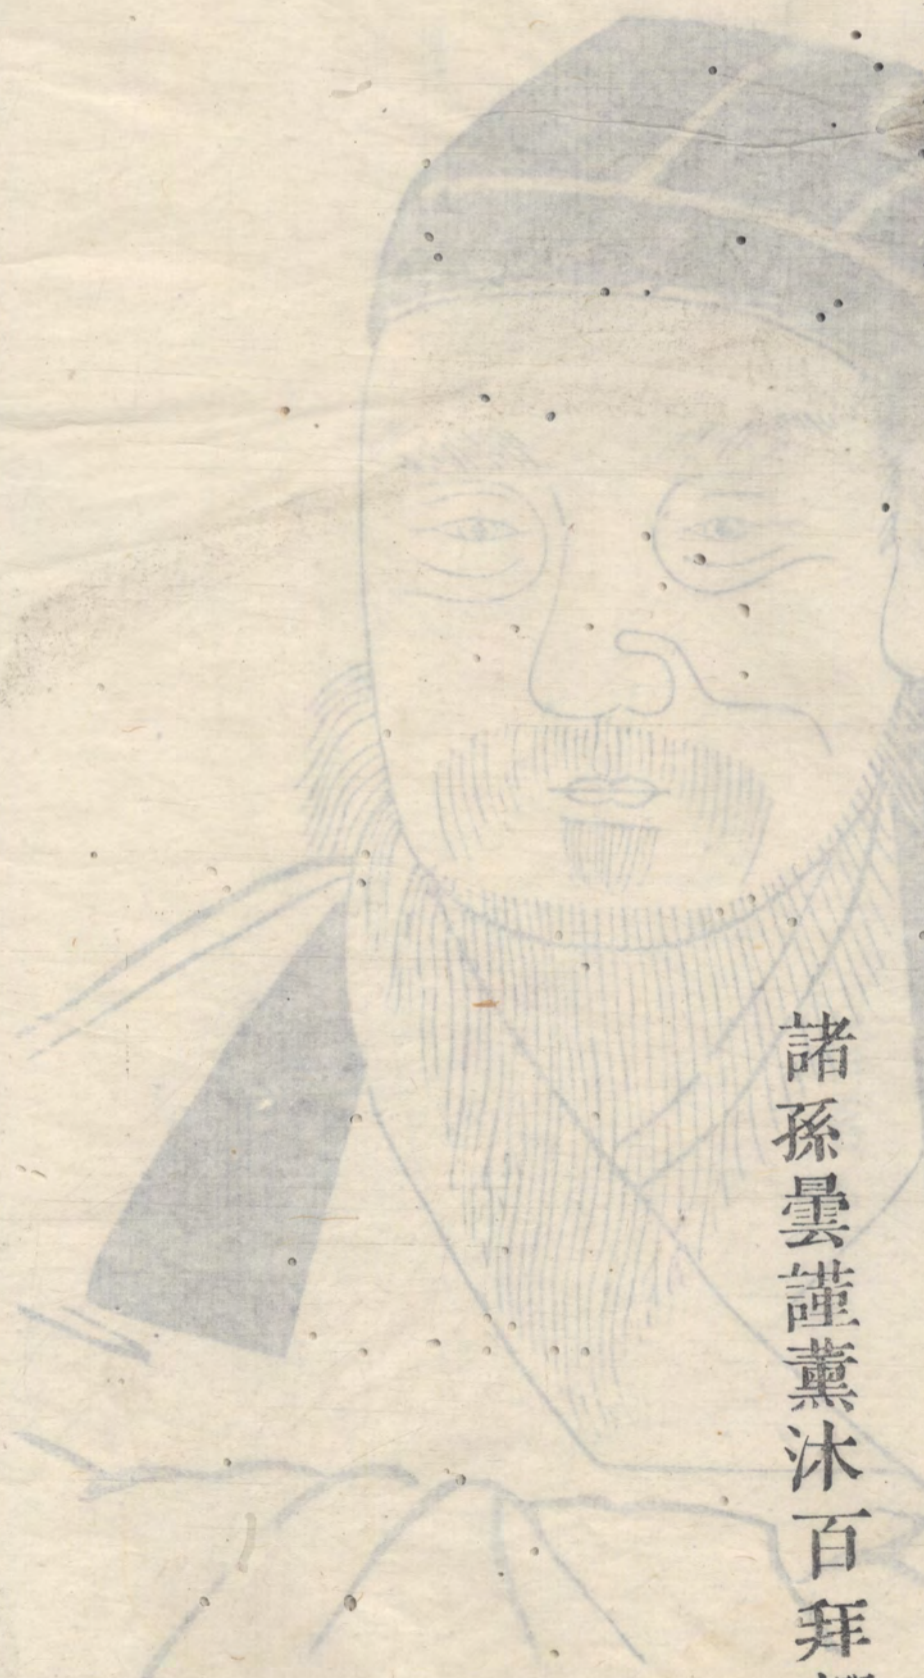 諸孫曇謹薰沐百拜